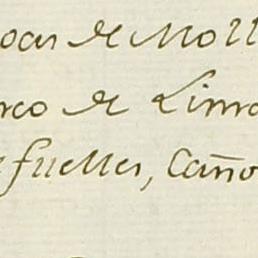 ocas de Moll
rco de Lima
fuelles, Caño